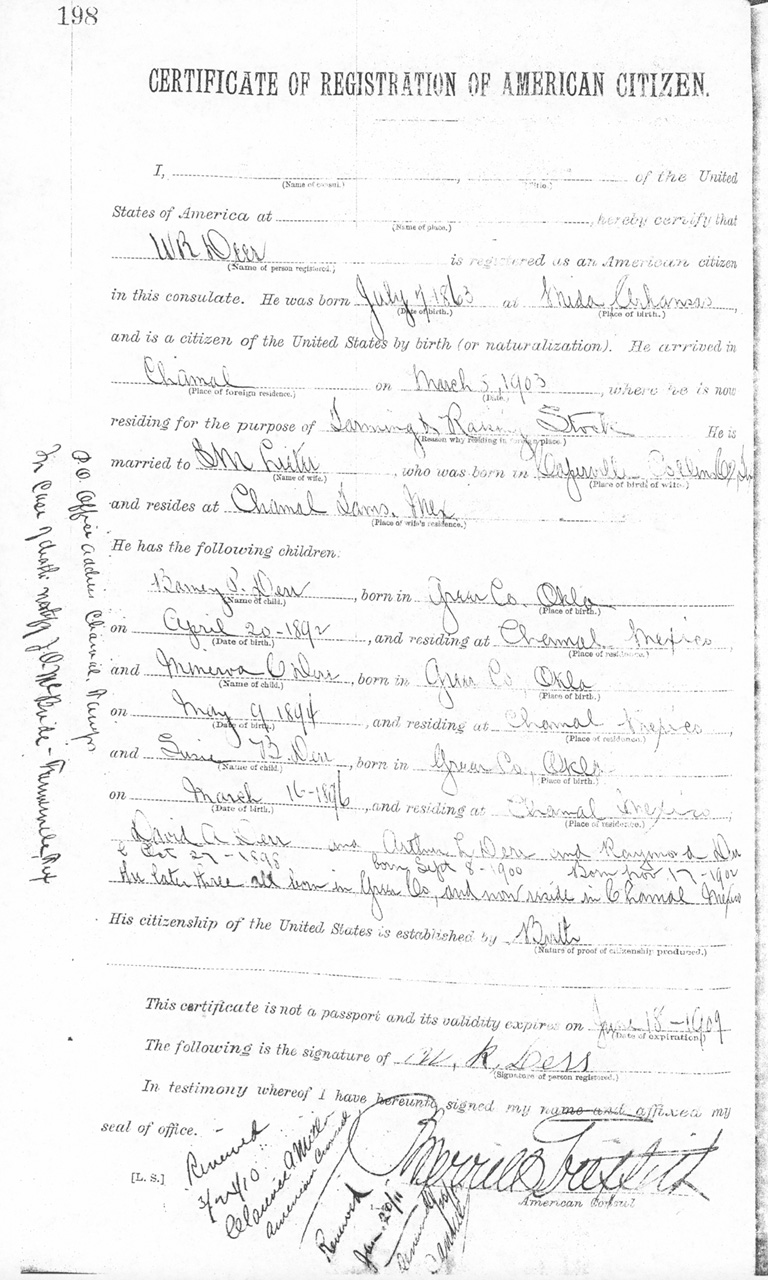 198
CERTIFICATE OF REGISTRATION OF AMERICAN CITIZEN.
I, , of the United
(Name of consul.) (Title.)
States of America at , hereby certify that
(Name of place.)
WR Derr is registered as an American citizen
(Name of person registered.)
in this consulate. He was born July 7, 1863 at Arkansas,
(Date of birth.) (Place of birth.)
and is a citizen of the United States by birth (or naturalization). He arrived in
Chamal on March 5, 1903, where he is now
(Place of foreign residence.) (Date.)
residing for the purpose of Farming & Raising Stock He is
(Reason why residing in foreign place.)
married to , who was born in Collin Co,
(Name of wife.) (Place of birth of wife.)
and resides at Chamal Tams. Mex
(Place of wife's residence.)
He has the following children:
Barney P. Derr, born in Greer Co. Okla
(Name of child.) (Place of birth.)
on April 20-1892, and residing at Chamal Mexico,
(Date of birth.) (Place of residence.)
and Minerva C Derr, born in Greer Co, Okla
(Name of child.) (Place of birth.)
on May 9 1894, and residing at Chamal Mexico,
(Date of birth.) (Place of residence.)
and Susie B. Derr, born in Greer Co, Okla
(Name of child.) (Place of birth.)
on March 16-1896, and residing at Chamal Mexico,
(Date of birth.) (Place of residence.)
David A Derr and Arthur L Derr and Raymond Derr
Oct 27-1898 born Sept 8-1900 Born Nov 17-1902
the later three all born in Greer Co, and now reside in Chamal Mexico
His citizenship of the United States is established by Birth
(Nature of proof of citizenship produced.)
This certificate is not a passport and its validity expires on June 18-1909
(Date of expiration)
The following is the signature of W. R. Derr
(Signature of person registered.)
In testimony whereof I have hereunto signed my name and affixed my
seal of office.
[L. S.]
American Consul
Renewed
3/24/10
Clarence A Miller
American Consul
Renewed
Jan 28/11
P.O. Office address Chamal, Tamps
In case of death notify